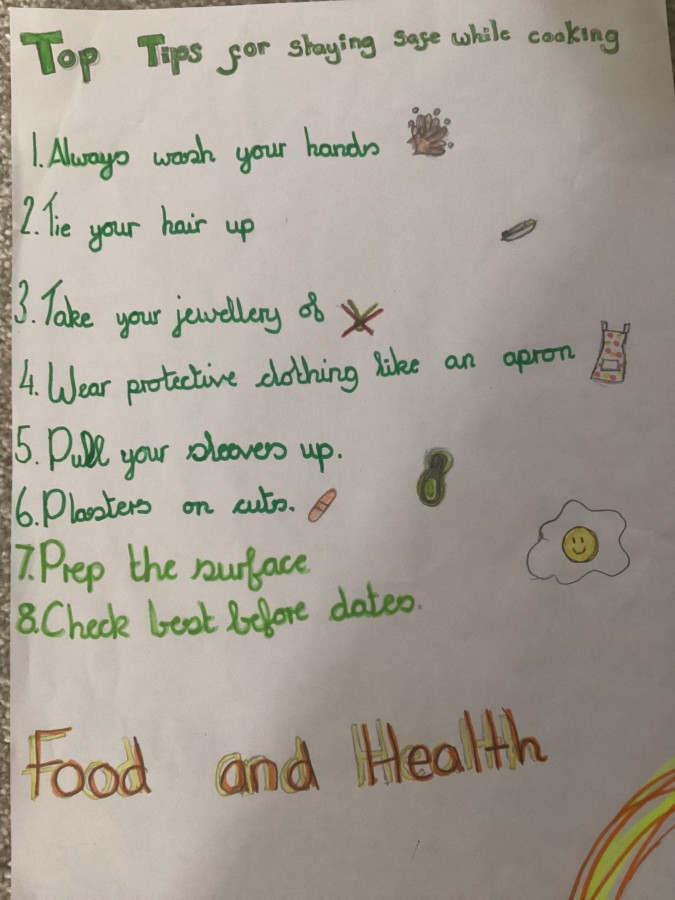 Top Tips for staying safe while cooking
1. Always wash your hands
2. Tie your hair up
3. Take your jewellery of
4. Wear protective clothing like an apron
5. Pull your sleevers up.
6. Plasters on cuts.
7. Prep the surface
8. Check best before dates.
Food and Health